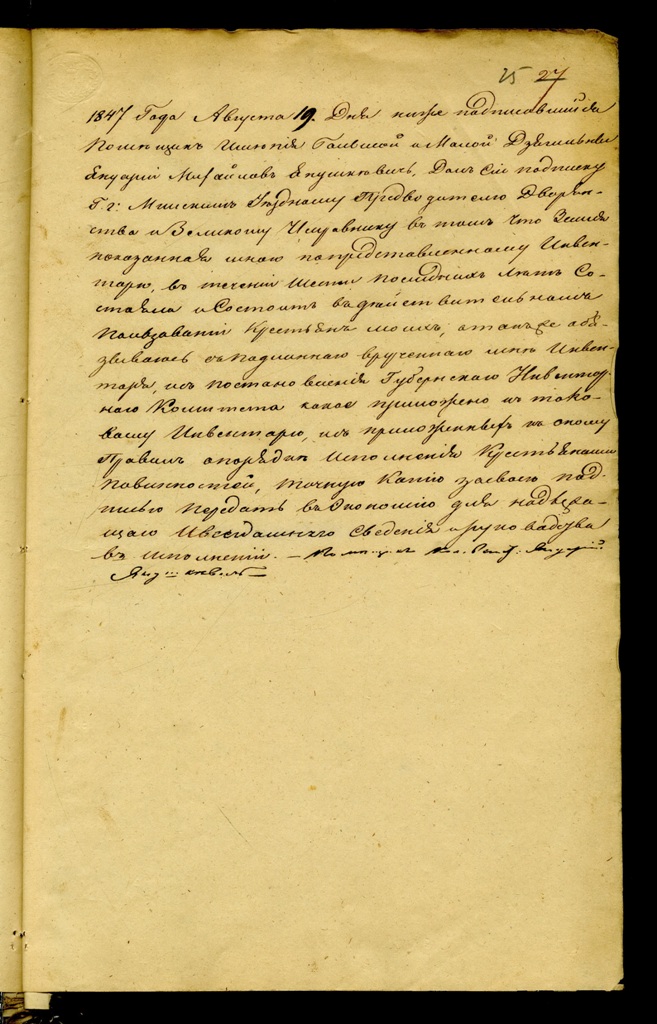 25 27
1847 Года Августа 19. Дня ниже подписавшийся
Помещик Имения Большой и Малой
Януарий Михайлов Янушкевич, Дал Сию подписку
Г.г: Минским Уездному Предводителю Дворян-
ства и Земскому Исправнику в том что Земля
показанная мною по представленному Инвен-
тарю, в течении Шести последних Лет Со-
стояла и Состоит в действительном
Пользовании Крестьян моих, а также обя-
зываюсь с подлиннаго врученнаго мне Инвен-
таря, и с постановления Губернскаго Инвентар-
наго Комитета какое приложено к тако-
вому Инвентарю, и с приложенных к оному
Правил о порядке исполнения Крестьянами
Повинностей, точную Копию за своею под-
писью передать в Экономию для надлежа-
щаго и всегдашняго сведения и руководства
в исполнении. — Помещик